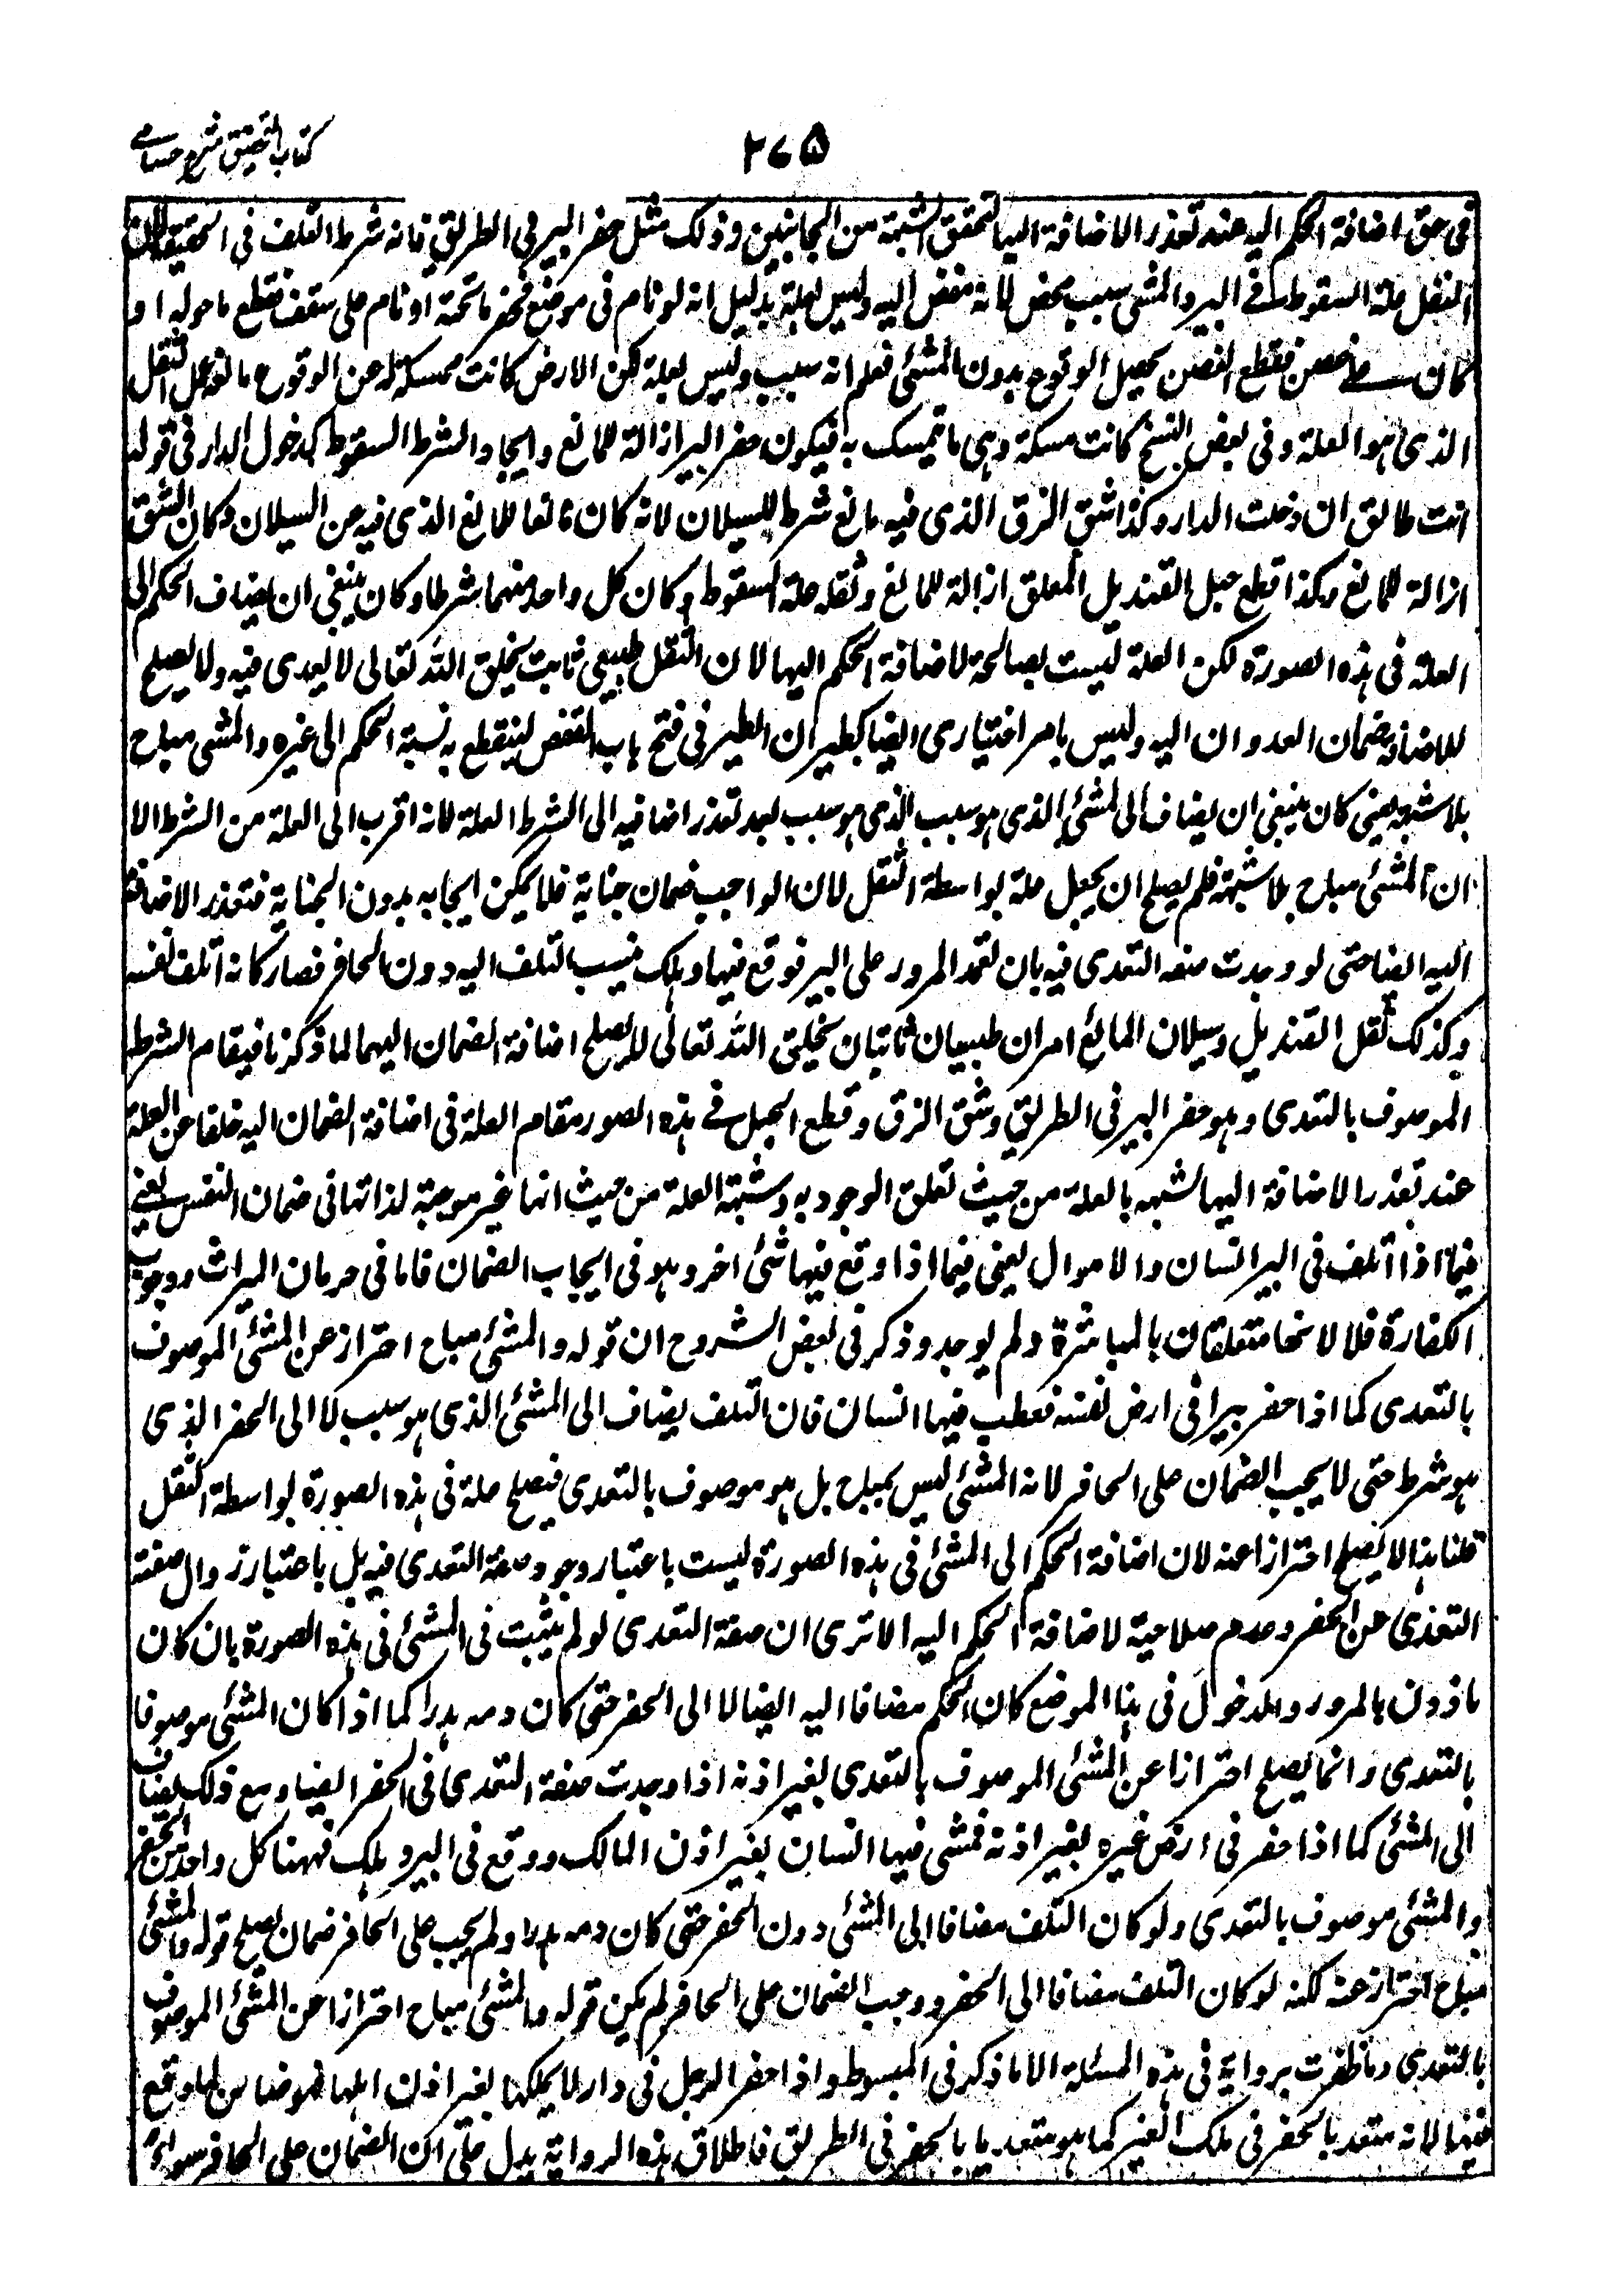 كتاب التحقيق شرح حسامے
٢٧٥
فی حق اضافة الحكم اليه عند تعذر الاضافة اليها لتحقق الشبهة من الجانبين وذلک مثل حفر البير فی الطريق فانه شرط التلف فی الحقيقة لان
الثقل علة السقوط فے البير والمشی سبب محض لانه مفض اليه وليس بعلة بدليل انه لو نام فی موضع فحفر ما تحته او نام علی سقف فقطع ما حوله او
كان علے غصن فقطع الغصن يحصل الوقوع بدون المشی فعلم انه سبب وليس بعلة لكن الارض كانت ممسكة عن الوقوع مانعة عمل الثقل
الذی هو العلة وفی بعض النسخ كانت مسكة وهی ما يتمسک به فيكون حفر البير ازالة للمانع وايجاد الشرط السقوط كدخول الدار فی قوله
انت طالق ان دخلت الدار وكذا شق الزق الذی فيه مائع شرط للسيلان لانه كان مانعا للمائع الذی فيه عن السيلان وكان الشق
ازالة للمانع وكذا قطع حبل القنديل المعلق ازالة للمانع وثقله علة السقوط وكان كل واحد منهما شرطا وكان ينبغی ان يضاف الحكم الی
العلة فی هذه الصورة لكن العلة ليست بصالحة لاضافة الحكم اليها لان الثقل طبيعی ثابت بخلق الله تعالی لا تعدی فيه ولا يصلح
للاضافة ضمان العدوان اليه وليس بامر اختياری ايضا كطيران الطير فی فتح باب القفص لينقطع به نسبة الحكم الی غيره والمشی مباح
بلا شبهة يعنی كان ينبغی ان يضاف الی المشی الذی هو سبب بعد تعذر اضافته الی العلة لانه اقرب الی العلة من الشرط الا
ان المشی مباح بلا شبهة فلم يصلح ان يجعل علة بواسطة الثقل لان الواجب ضمان جناية فلا يمكن ايجابه بدون الجناية فتعذر الاضافة
اليه ايضا حتی لو وجدت صفة التعدی فيه بان تعمد المرور علی البير فوقع فيها وهلک ينسب التلف اليه دون الحافر فصار كانه اتلف نفسه
وكذلک ثقل القنديل وسيلان المائع امران طبيعيان ثابتان بخلق الله تعالی لا يصلح اضافة الضمان اليهما لما ذكرنا فيقام الشرط
الموصوف بالتعدی وهو حفر البير فی الطريق وشق الزق وقطع الحبل فے هذه الصور مقام العلة فی اضافة الضمان اليه خلفا عن العلة
عند تعذر الاضافة اليها لشبهه بالعلة من حيث تعلق الوجود به وشبهة العلة من حيث انها غير موجبة لذاتها فی ضمان النفس يعنی
فيما اذا اتلف فی البير انسان والاموال يعنی فيما اذا وقع فيها شئ اخر وهو فی ايجاب الضمان فاما فی حرمان الميراث ووجوب
الكفارة فلا لانهما متعلقان بالمباشرة ولم يوجد وذكر فی بعض الشروح ان قوله والمشی مباح احتراز عن المشی الموصوف
بالتعدی كما اذا حفر بيرا فی ارض نفسه فعطب فيها انسان فان التلف يضاف الی المشی الذی هو سبب لا الی الحفر الذی
هو شرط حتی لا يجب الضمان علی الحافر لانه المشی ليس بمباح بل هو موصوف بالتعدی فيصلح علة فی هذه الصورة بواسطة الثقل
قلنا هذا لا يصلح احترازا عنه لان اضافة الحكم الی المشی فی هذه الصورة ليست باعتبار وجود صفة التعدی فيه بل باعتبار زوال صفة
التعدی عن الحفر وعدم صلاحية لاضافة الحكم اليه الا تری ان صفة التعدی لو لم يثبت فی المشی فی هذه الصورة بان كان
ماذون بالمرور والدخول فی هذا الموضع كان الحكم مضافا اليه ايضا لا الی الحفر حتی كان دمه هدرا كما اذا كان المشی موصوفا
بالتعدی وانما يصلح احترازا عن المشی الموصوف بالتعدی بغير اذنه اذا وجدت صفة التعدی فی الحفر ايضا ومع ذلک يضاف
الی المشی كما اذا حفر فی ارض غيره بغير اذنه فمشی فيها انسان بغير اذن المالک ووقع فی البير وهلک فههنا كل واحد من الحفر
والمشی موصوف بالتعدی ولو كان التلف مضافا الی المشی دون الحفر حتی كان دمه هدرا ولم يجب علی الحافر ضمان يصلح قوله والمشی
مباح احترازا عنه لكنه لو كان التلف مضافا الی الحفر ووجب الضمان علی الحافر لم يكن قوله والمشی مباح احترازا عن المشی الموصوف
بالتعدی وما ظفرت برواية فی هذه المسئلة الا ما ذكر فی المبسوط واذا حفر الرجل فی دار لا يملكها بغير اذن اهلها فهو ضامن لما وقع
فيها لانه متعد بالحفر فی ملک الغير كما هو متعد بالحفر فی الطريق فاطلاق هذه الرواية يدل علی ان الضمان علی الحافر سواء